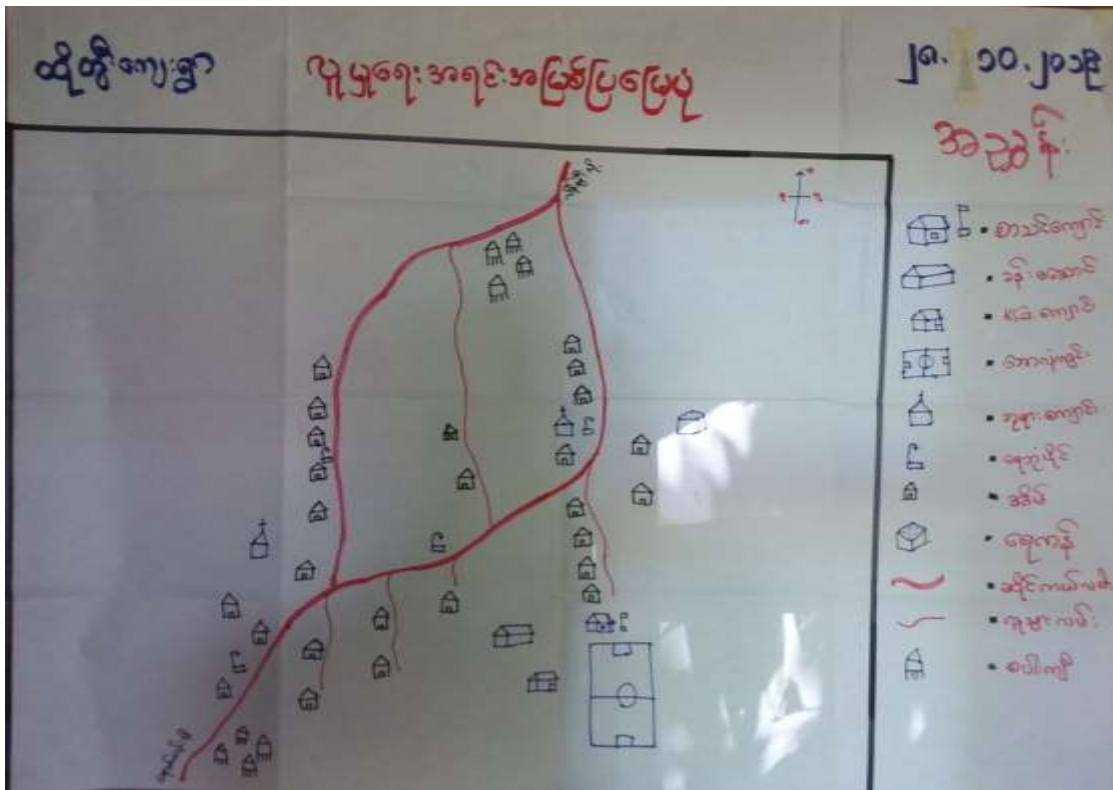 ထိုထွီကျေးရွာ
လူမှုရေးအရင်းအမြစ်ပြမြေပုံ
၂၈. ၁၀. ၂၀၁၉
အညွှန်း
• စာသင်ကျောင်း
• ခန်းမဆောင်
• KG ကျောင်း
• ဘောလုံးကွင်း
• ဘုရားကျောင်း
• ရေဘုံပိုင်
• အိမ်
• ရေကန်
• ဆိုင်ကယ်လမ်း
• လူသွားလမ်း
• စပါးကျီ